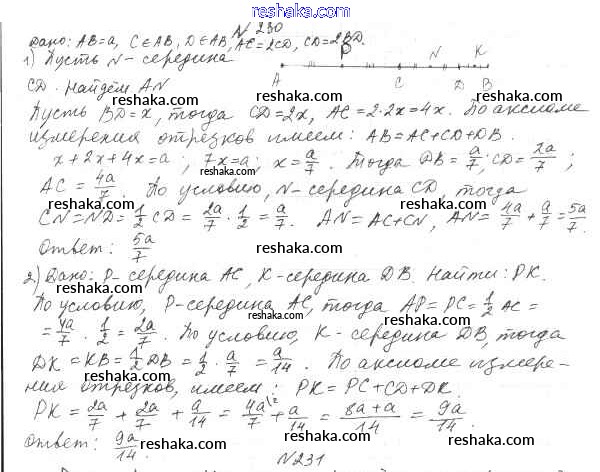 № 230
Дано: AB=a, C∈AB, D∈AB, AC=2CD, CD=2BD.
1) Пусть N - середина
P N K
A C D B
CD. Найдём AN
reshaka.com reshaka.com reshaka.com
Пусть BD=x, тогда CD=2x, AC=2·2x=4x. По аксиоме
измерения отрезков имеем: AB=AC+CD+DB.
x+2x+4x=a; 7x=a; x=a/7. Тогда DB=a/7; CD=2a/7;
reshaka.com reshaka.com reshaka.com
AC=4a/7. По условию, N-середина CD, тогда
CN=ND=1/2 CD=2a/7·1/2=a/7. AN=AC+CN, AN=4a/7+a/7=5a/7.
reshaka.com reshaka.com reshaka.com
Ответ: 5a/7
reshaka.com reshaka.com reshaka.com
2) Дано: P-середина AC, K-середина DB. Найти: PK.
По условию, P-середина AC, тогда AP=PC=1/2 AC=
reshaka.com
=4a/7·1/2=2a/7. По условию, K-середина DB, тогда
reshaka.com reshaka.com
DK=KB=1/2 DB=1/2·a/7=a/14. По аксиоме измере-
reshaka.com reshaka.com reshaka.com
ния отрезков, имеем: PK=PC+CD+DK.
PK=2a/7+2a/7+a/14=4a\2/7+a/14=8a+a/14=9a/14.
reshaka.com reshaka.com reshaka.com
Ответ: 9a/14.
reshaka.com reshaka.com reshaka.com
№231